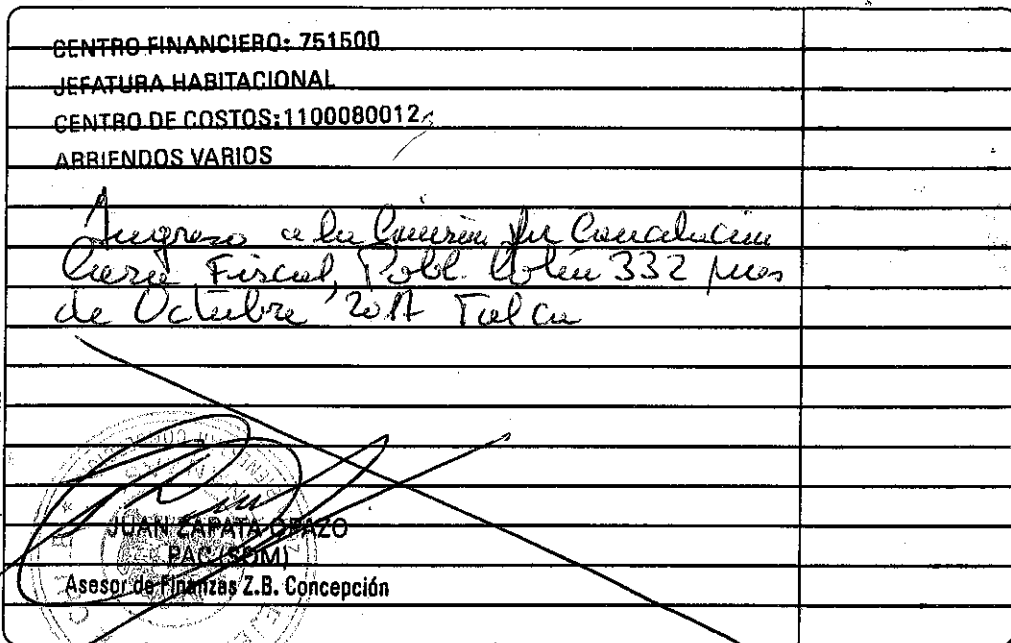 CENTRO FINANCIERO: 751500
JEFATURA HABITACIONAL
CENTRO DE COSTOS:1100080012
ARRIENDOS VARIOS
Ingreso a la
Casa Fiscal, Pobl. Colín 332 mes
de Octubre 2017 Talca
JUAN ZAPATA OPAZO
PAC (SOM)
Asesor de Finanzas Z.B. Concepción